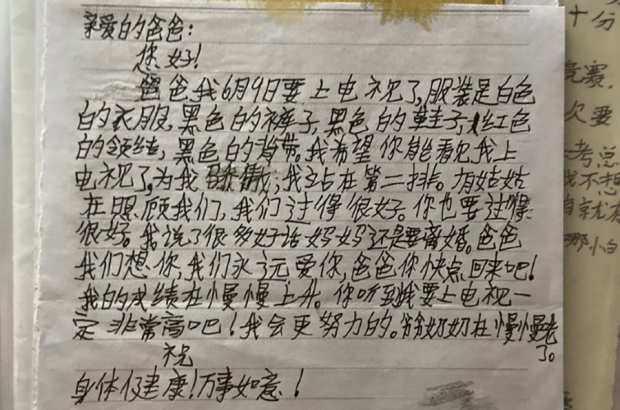 亲爱的爸爸：
您好！
爸爸，我6月9日要上电视了，服装是白色
的衣服，黑色的裤子，黑色的鞋子，红色
的领结，黑色的背带。我希望你能看见我上
电视了，为我骄傲；我站在第二排。有姑姑
在照顾我们，我们过得很好。你也要过得
很好。我说了很多好话妈妈还是要离婚。爸爸
我们想你，我们永远爱你，爸爸你快点回来吧！
我的成绩在慢慢上升。你听到我要上电视一
定非常高吧！我会更努力的。爷奶奶在慢慢老
了。
祝
身体健康！万事如意！
十分
竞赛，
次要
考总
我不想
自就有
那小白